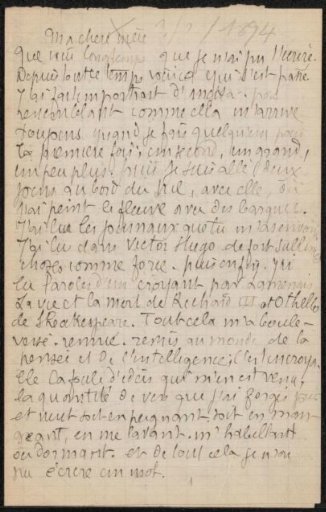 Ma chère mère 2/2/1894
que voici longtemps que je n'ai pu t'écrire.
Depuis tout ce temps voici ce qui s'est passé
J'ai fait un portrait d'
ressemblant comme cela m'arrive
toujours quand je fais quelqu'un pour
la première fois; un second, un grand,
un peu plus. Puis je suis allé deux
jours au bord du Nil, avec elle, où
j'ai peint le fleuve avec des barques.
J'ai lu les journaux que tu m'as envoyés
J'ai lu dans Victor Hugo de fort sublimes
choses comme force. puis enfin j'ai
lu paroles d'un croyant par Lamenais,
La vie et la mort de Richard III et Othello
de Shackespeare. Tout cela m'a boule-
versé. remué. remis au monde de la
pensée et de l'intelligence; c'est incroya-
ble la foule d'idées qui m'en est venue
la quantité de vers que j'ai forgés jour
et nuit soit en peignant soit en man-
geant, en me lavant. m'habillant
ou dormant. et de tout cela je n'ai
pu écrire un mot.